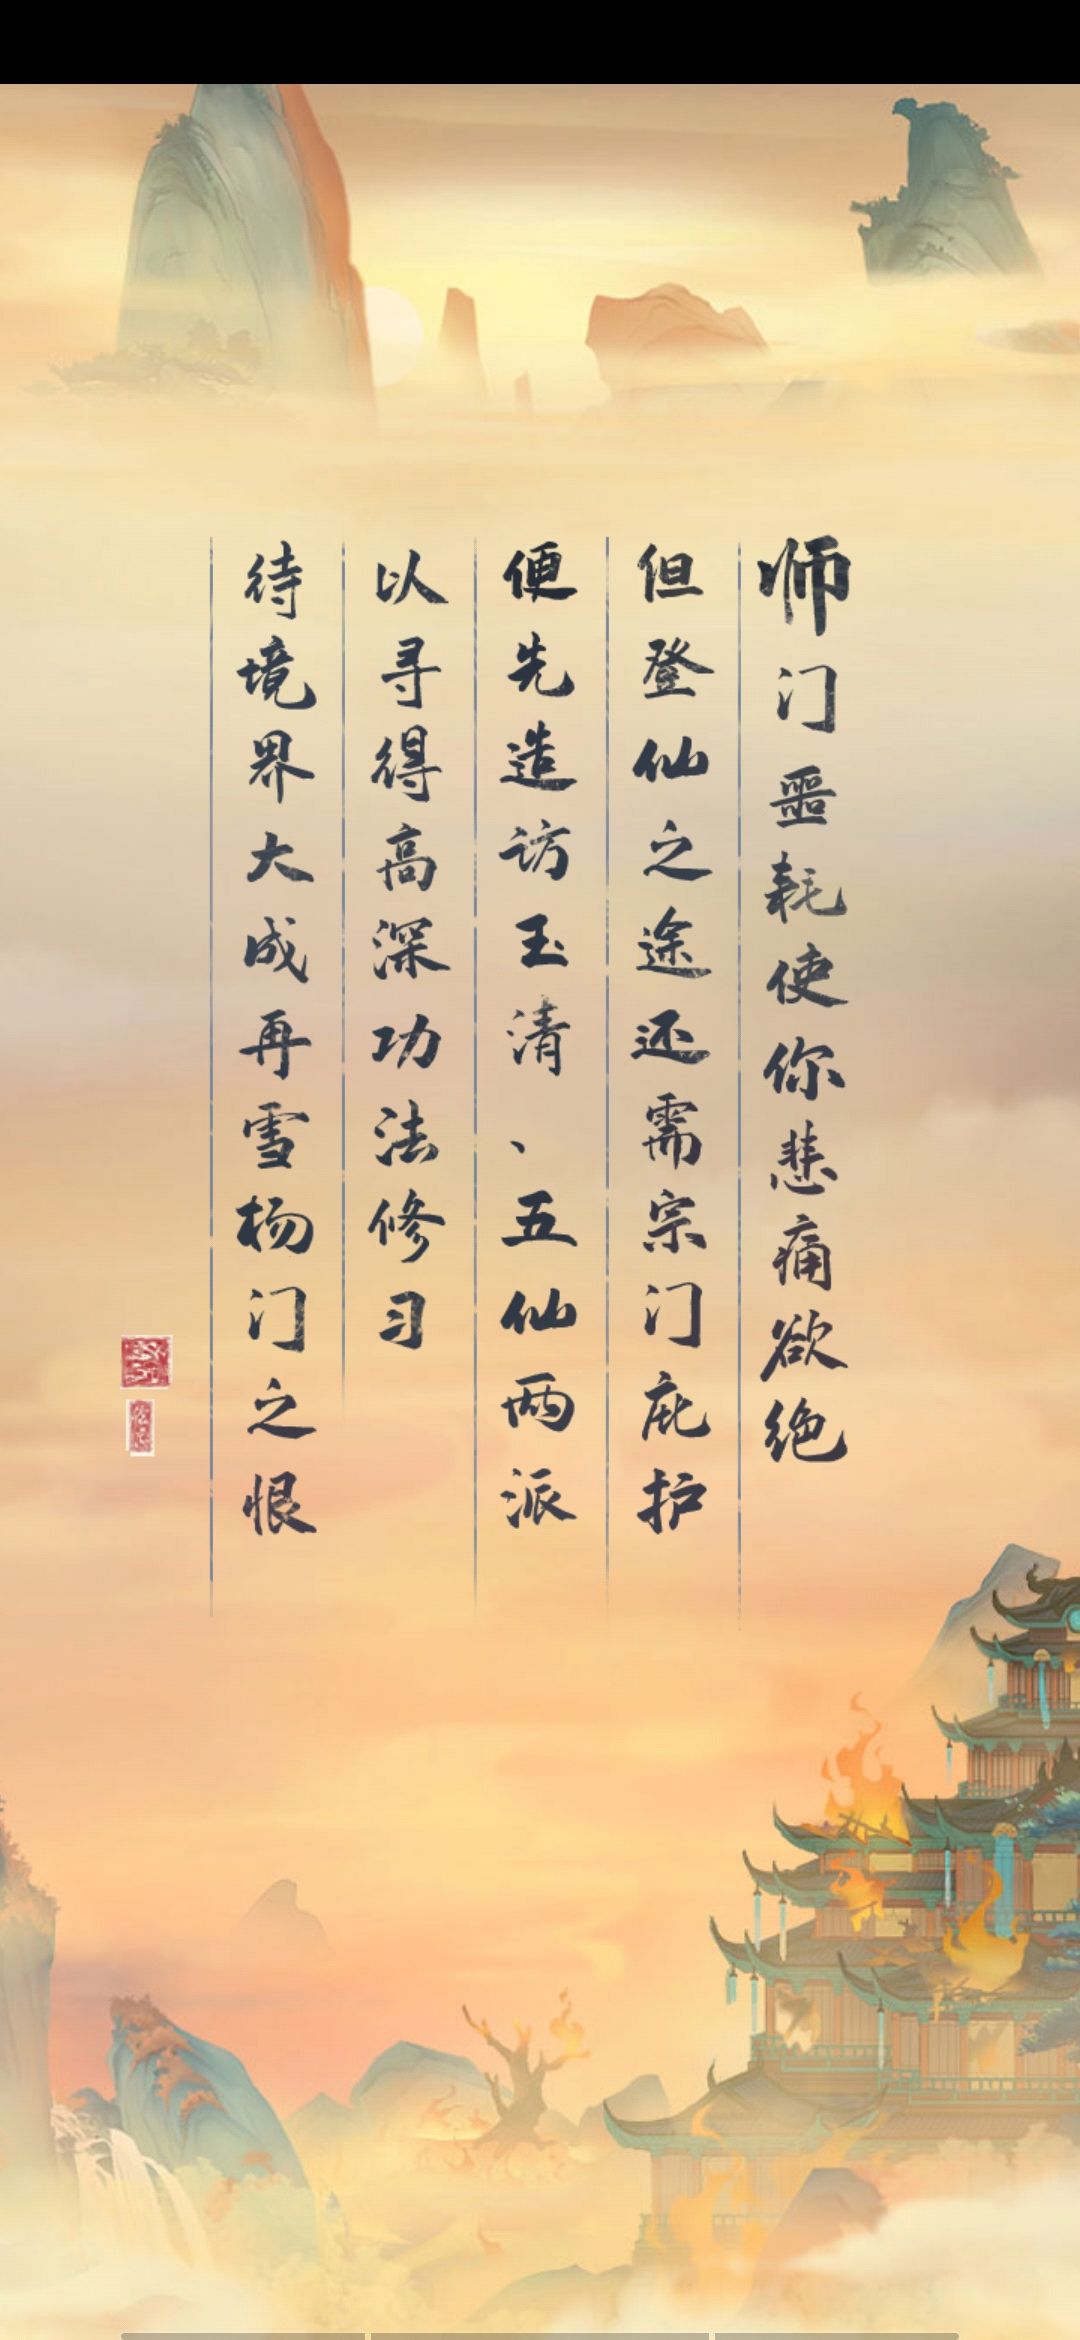 师门噩耗使你悲痛欲绝
但登仙之途还需宗门庇护
便先造访玉清、五仙两派
以寻得高深功法修习
待境界大成再雪杨门之恨